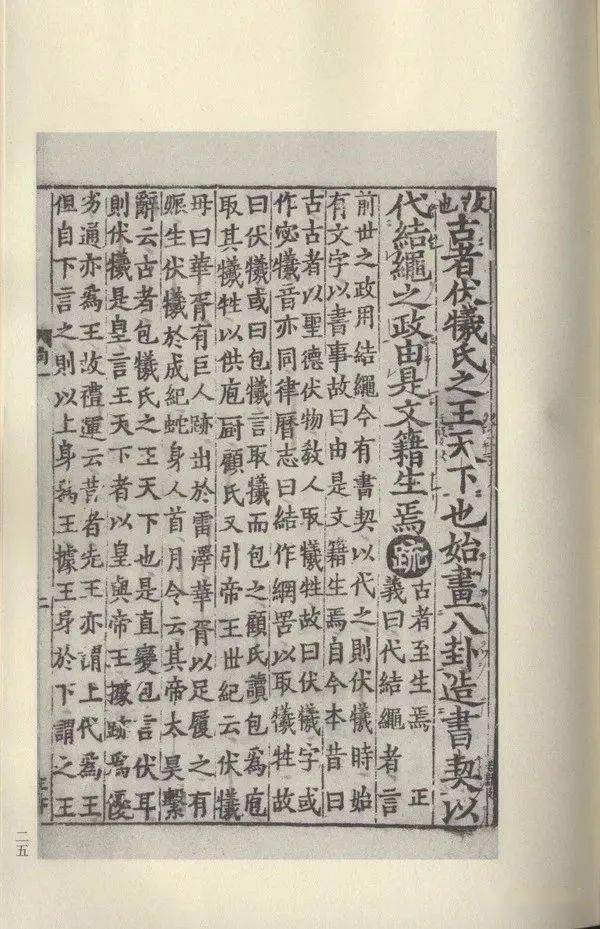 古者伏犧氏之王天下也始畫八卦造書契以
代結繩之政由是文籍生焉疏古者至生焉 正
義曰代結繩者言
前世之政用結繩今有書契以代之則伏犧時始
有文字以書事故曰由是文籍生焉自今本昔曰
古古者以聖德伏物教人取犧牲故曰伏犧字或
作宓犧音亦同律曆志曰結作網罟以取犧牲故
曰伏犧或曰包犧言取犧而包之顧氏讀包爲庖
取其犧牲以供庖厨顧氏又引帝王世紀云伏犧
母曰華胥有巨人跡出於雷澤華胥以足履之有
娠生伏犧於成紀蛇身人首月令云其帝太昊繫
辭云古者包犧氏之王天下也是直變包言伏耳
則伏犧是皇言王天下者以皇與帝王據跡爲優
劣通亦爲王故禮運云昔者先王亦謂上代爲王
但自下言之則以上身爲王據王身於下謂之王
二五